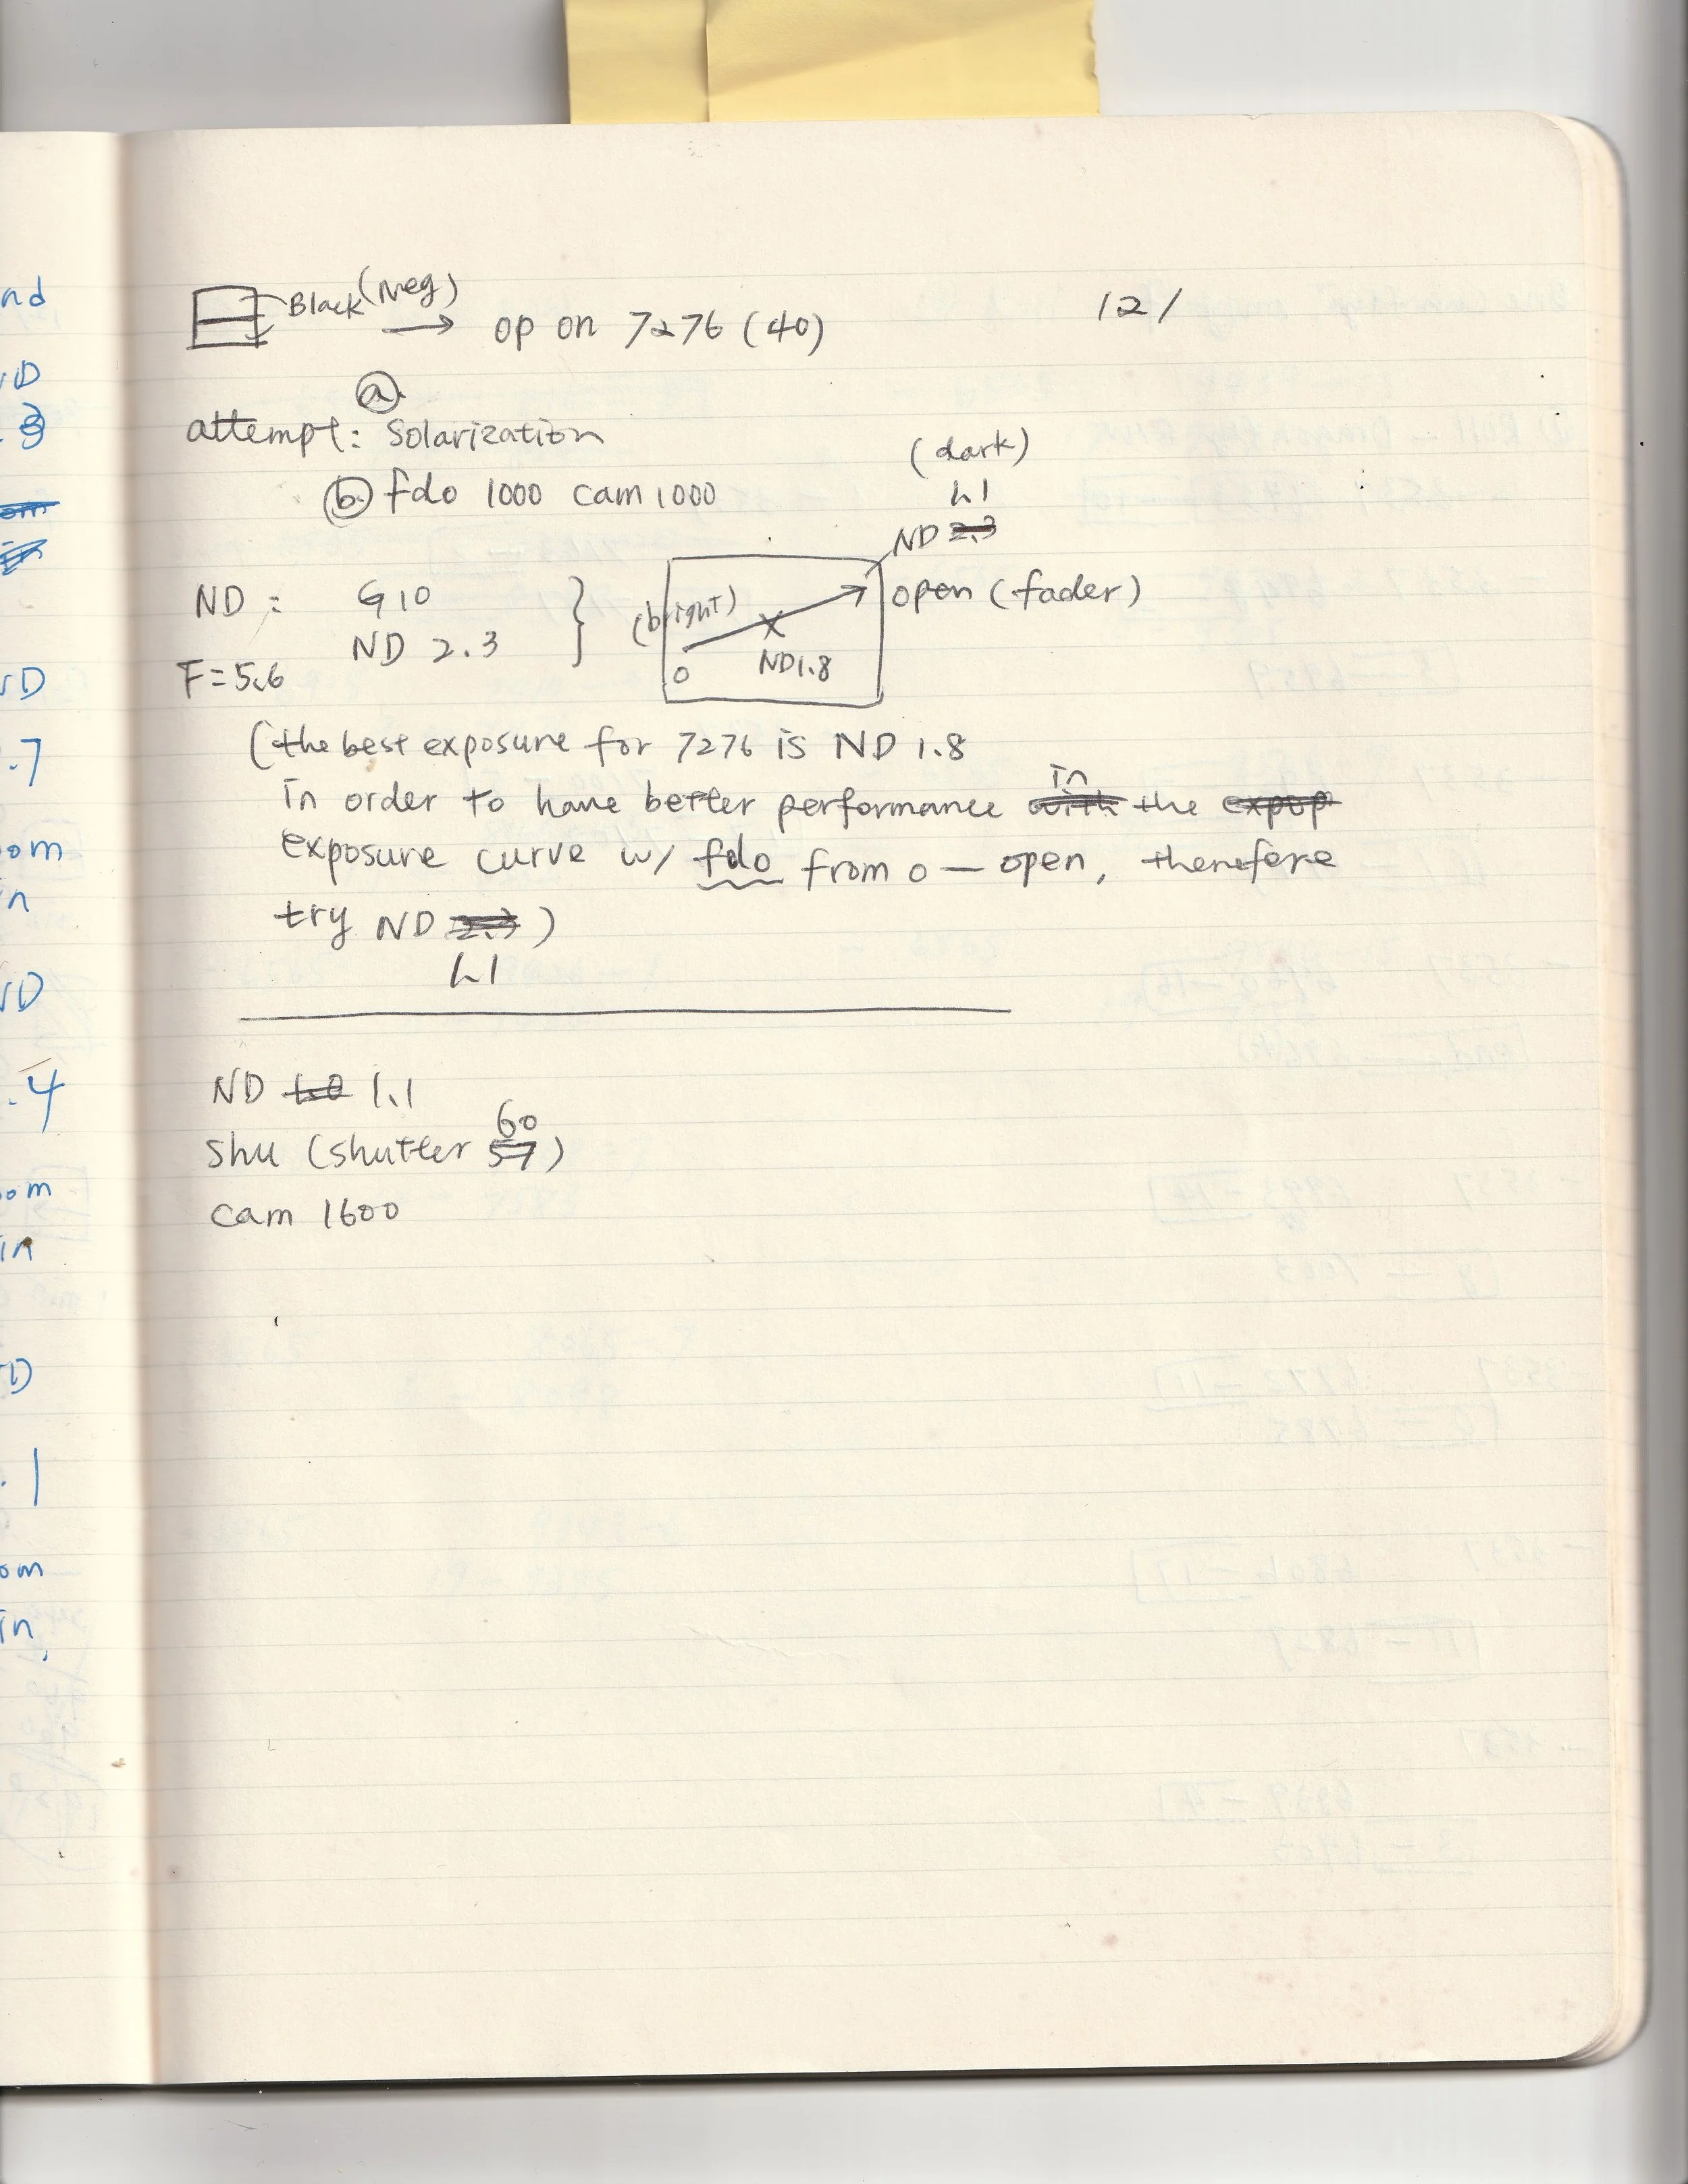 Black (Neg) → op on 7276 (40)
12/
attempt: ⓐ Solarization
ⓑ fdo 1000 cam 1000
(dark)
1.1
ND 2.3
open (fader)
(bright)
0
ND 1.8
ND: G 10
ND 2.3
F=5.6
(the best exposure for 7276 is ND 1.8
in order to have better performance with in the expop
exposure curve w/ fdo from 0 — open, therefore
try ND 2.3)
1.1
ND 1.1
shu (shutter 57 60)
cam 1600
nd
ND
.3
ND
.7
om
in
ND
.4
om
in
D
.1
om
in